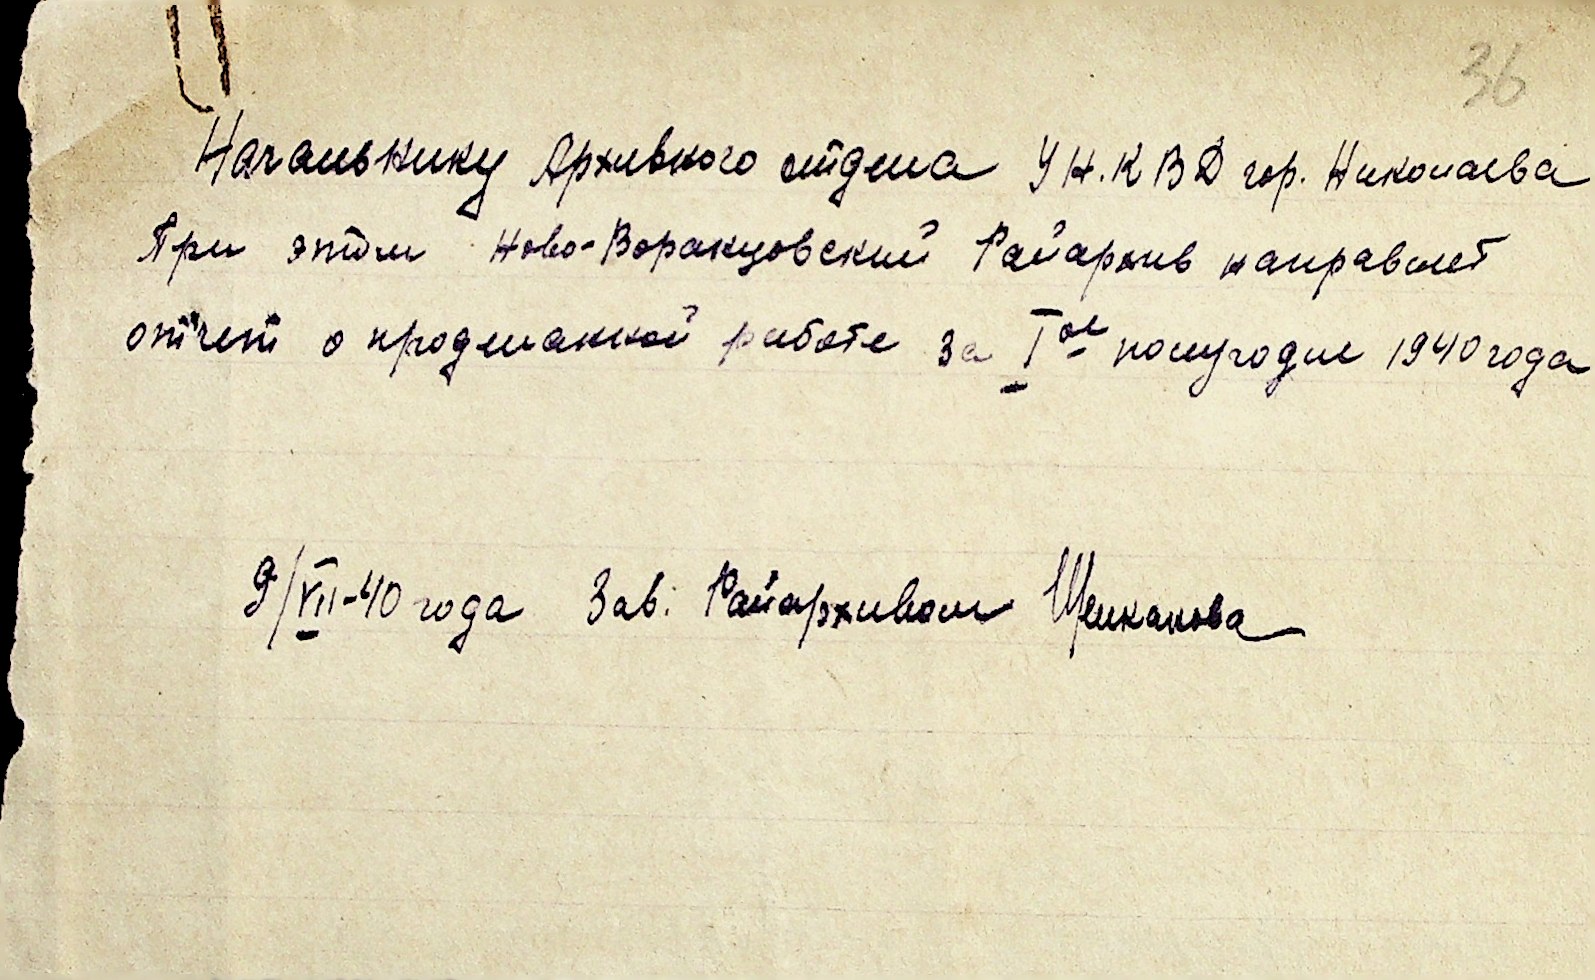 36
Начальнику Архивного отдела УН.КВД гор. Николаева
При этом Ново-Воранцовский Райархив направляет
отчет о проделанной работе за I ое полугодие 1940 года
9/VII-40 года Зав. Райархивом